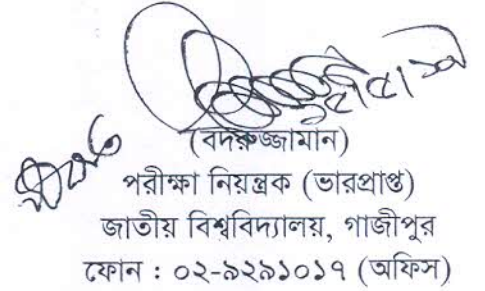 (বদরুজ্জামান)
পরীক্ষা নিয়ন্ত্রক (ভারপ্রাপ্ত)
জাতীয় বিশ্ববিদ্যালয়, গাজীপুর
ফোন : ০২-৯২৯১০১৭ (অফিস)